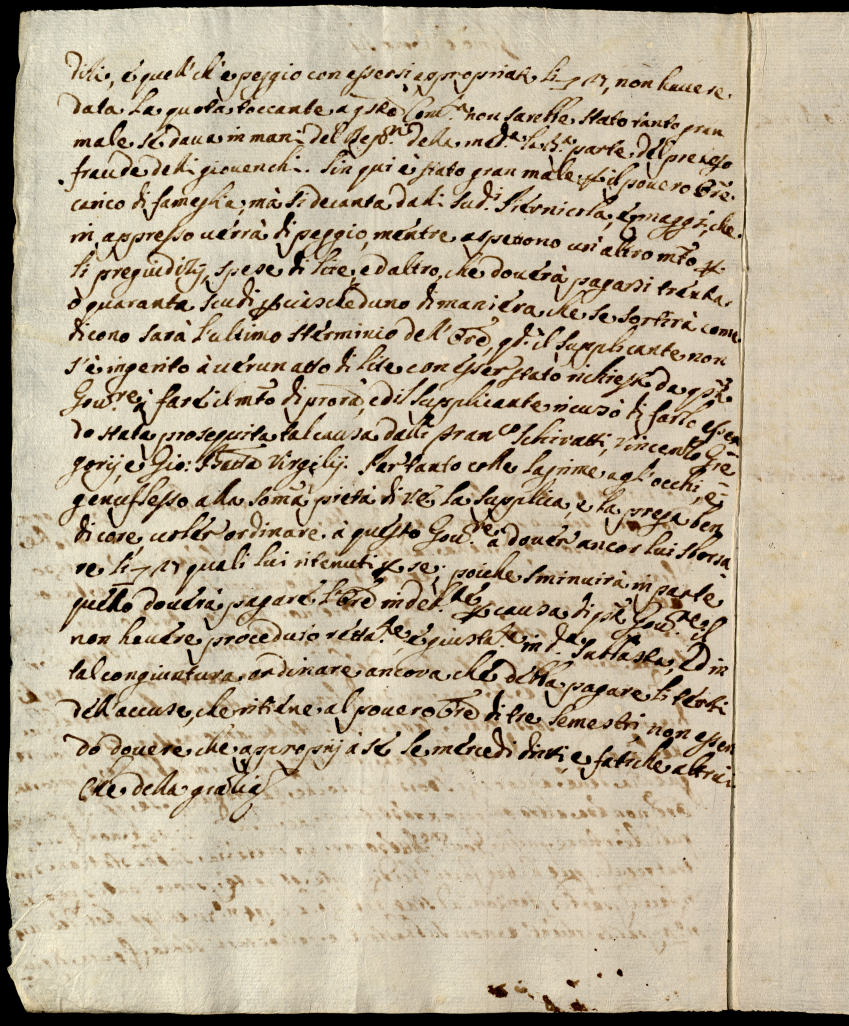 diti, e quell ch'è peggio con essersi appropriati li 17, non havere
data la quota toccante a q.sta Com.tà non sarebbe stato tanto gran
male se dava in man: del Dep.o della med.a la 3.a parte del prezzo
fraudedelli giovenchi. Sin qui è stato gran male p il povero Ore
carico di fameglia; mà si decanta dalli sud.i Piernicola, e maggri, che
in appresso verrà di peggio, mentre aspettono un altro mto p
li pregiuditij, spese di lite, ed altro, che doverà pagarsi trenta,
ò quaranta scudi p ciascheduno di maniera, che se sortirà come
dicono sarà l'ultimo sterminio dell'Ore, q.do il supplicante non
s'è ingerito à verun atto di lite con esser stato richiesto da q.sto
Gov.re à fare il mto di prorà, ed il supplicante ricusò di farlo essen
do stata proseguita tal causa dalli Fran.co Schiratti, Vincenzo Gre
gorij, e Gio: Batta Virgilij. Pertanto colle lagrime agl'occhi, e
genuflesso alla somma pietà di VE la supplica, e la prega ben
di core voler ordinare à questo Gov.re à dover ancor lui sborsa
re li 17 quali lui ritenuti p se; poiche sminuirà in parte
quello doverà pagare l'Ore indeb.te p causa di q.sto Gov.re p
non havere proceduto retta.te, e giusta.te in d.a subbasta, Ed in
tal congiuntura ordinare ancora che debba pagare li terbi
dell'accuse, che ritiene al povero Ore di tre semestri, non essen
do dovere che approprij à sè le mercedi dritti, e fatiche altrui
Che della gratia